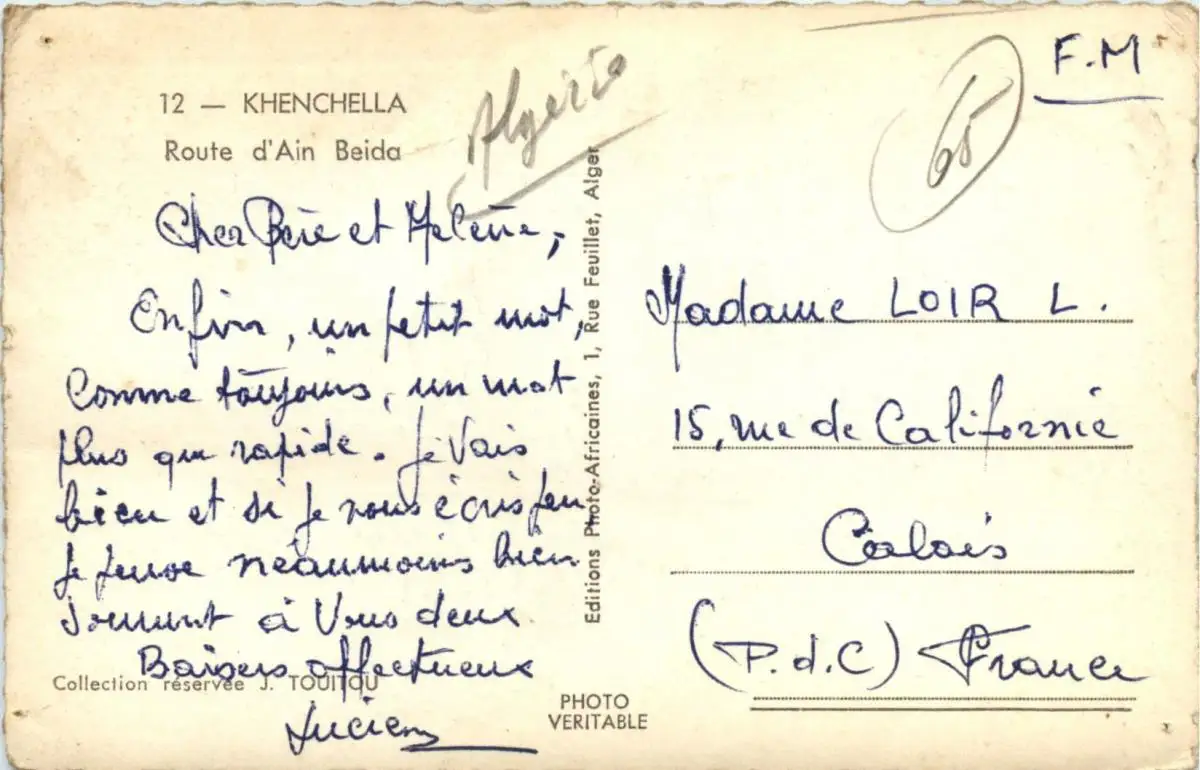 12 — KHENCHELLA
Route d'Ain Beida
Algérie
Cher Père et Helène,
Enfin, un petit mot,
Comme toujours, un mot
plus que rapide. Je vais
bien et si je vous écris peu,
je pense néaumoins bien
souvent à Vous deux
Baisers affectueux
Lucien
Collection réservée J. TOUITOU
Editions Photo-Africaines, 1, Rue Feuillet, Alger
PHOTO
VERITABLE
F.M
65
Madame LOIR L.
15, rue de Californie
Calais
(P.d.C) France